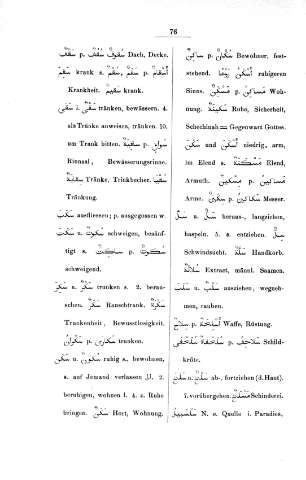 76
سَقْفٌ p. سُقُوفٌ u. سُقُفٌ Dach, Decke.
سَقِمَ krank s. سُقْمٌ, سَقَمٌ p. أَسْقَامٌ
Krankheit. سَقِيمٌ krank.
سَقَى i. سَقْىٌ tränken, bewässern. 4.
als Tränke anweisen, tränken. 10.
um Trank bitten. سَاقِيَةٌ p. سَوَاقٍ
Rinnsal, Bewässerungsrinne.
سِقَايَةٌ Tränke, Trinkbecher.
Tränkung.
سَكَبَ ausfliessen; p. ausgegossen w.
سَكَتَ u. سُكُوتٌ schweigen, besänf-
tigt s. سَاكِتٌ p. سُكُوتٌ
schweigend.
سَكِرَ trunken s. 2. berau-
schen. سُكْرٌ Rauschtrank.
Trunkenheit, Bewusstlosigkeit.
سَكْرَانُ p. سُكَارَى trunken.
سَكَنَ u. سُكُونٌ ruhig s., bewohnen,
s. auf Jemand verlassen إلى. 2.
beruhigen, wohnen l. 4. z. Ruhe
bringen. سَكَنٌ Hort, Wohnung.
سَاكِنٌ p. سُكَّانٌ Bewohner, fest-
stehend. ruhigeren
Sinns. مَسْكَنٌ p. مَسَاكِنُ Woh-
nung. سَكِينَةٌ Ruhe, Sicherheit,
Schechinah = Gegenwart Gottes.
سَكَنَ und أَسْكَنَ niedrig, arm,
im Elend s. مَسْكَنَةٌ Elend,
Armuth. مِسْكِينٌ p. مَسَاكِينُ
Arme. سِكِّينٌ p. سَكَاكِينُ Messer.
سَلَّ u. سَلٌّ heraus-, langziehen,
haspeln. 5. s. entziehen. سُلٌّ
Schwindsucht. سَلَّةٌ Handkorb.
سُلَالَةٌ Extract, männl. Saamen.
سَلَبَ u. سَلْبٌ ausziehen, wegneh-
men, rauben.
سِلَاحٌ p. أَسْلِحَةٌ Waffe, Rüstung.
سُلَحْفَاةٌ p. سَلَاحِفُ Schild-
kröte.
سَلَخَ u. سَلْخٌ ab-, fortziehen (d. Haut).
7. vorübergehen. مَسْلَخٌ Schinderei.
سَلْسَبِيلٌ N. e. Quelle i. Paradies,